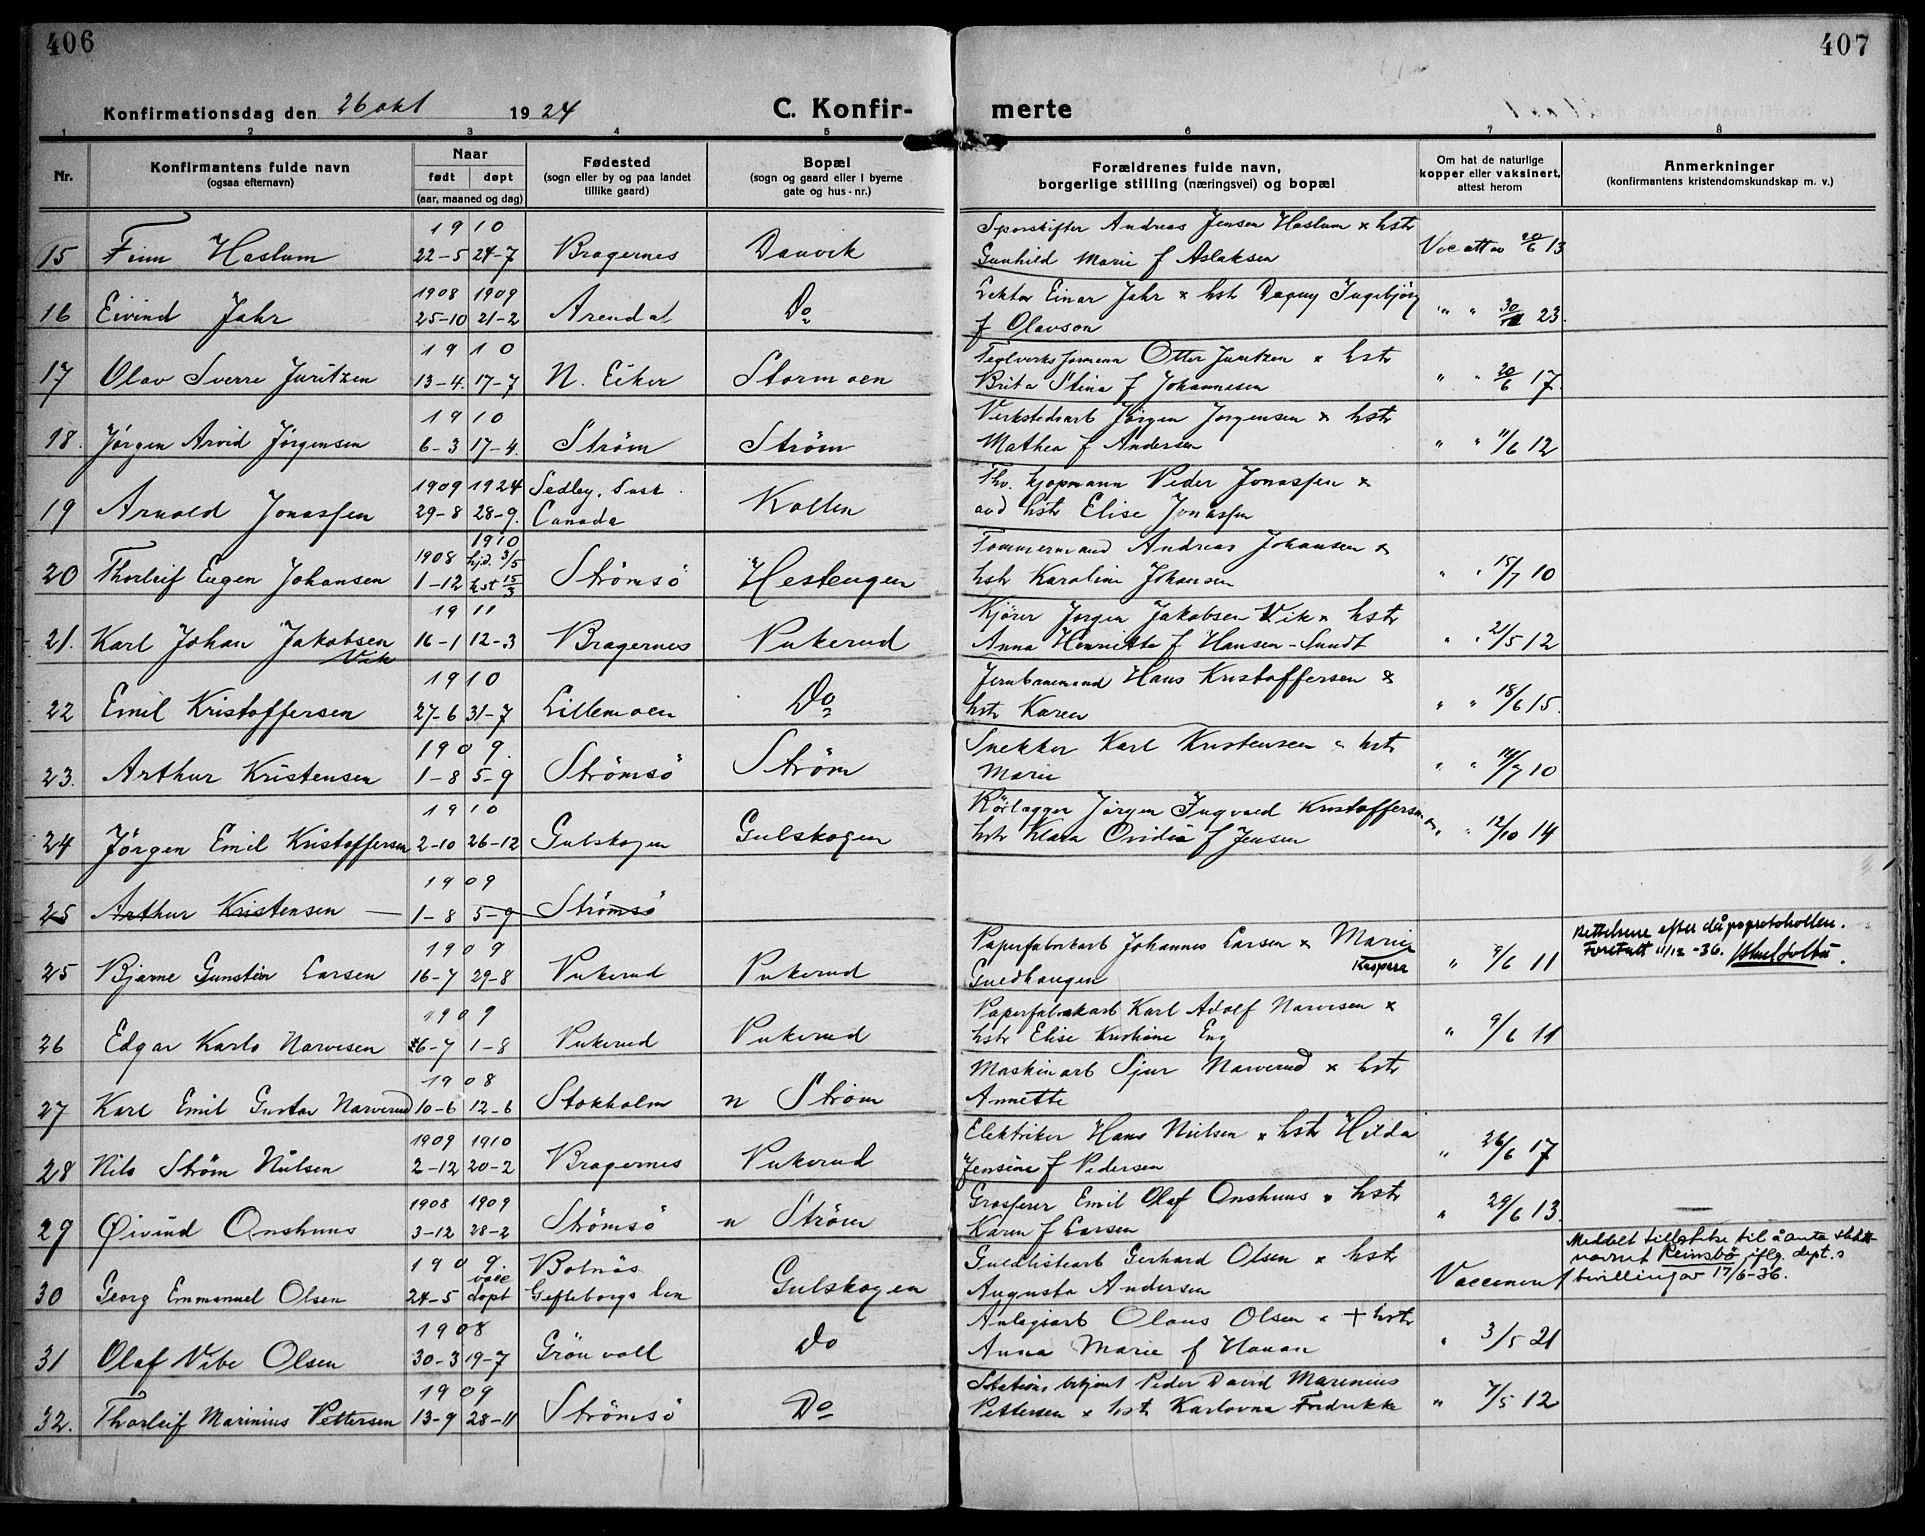 406
407
Konfirmationsdag den 26 okt 1924
C. Konfir-
merte
1 2 3 4 5 6 7 8
Nr.
Konfirmantens fulde navn
(ogsaa efternavn)
Naar
født døpt
(aar, maaned og dag)
Fødested
(sogn eller by og paa landet
tillike gaard)
Bopæl
(sogn og gaard eller i byerne
gate og hus-nr.)
Forældrenes fulde navn,
borgerlige stilling (næringsvei) og bopæl
Om hat de naturlige
kopper eller vaksinert,
attest herom
Anmerkninger
(konfirmantens kristendomskundskap m. v.)
1910 Sporskifter Andreas Jensen Haslum & hstr
15 Finn Haslum 22-5 24-7 Bragernes Danvik Gunhild Marie f Aslaksen Vac att av 20/6 13
1908 1909 Lektor Einar Jahr & hstr Dagny Ingebjörg
16 Eivind Jahr 25-10 21-2 Arendal Do f Olavson " " 23.
1910 Teglverksformann Otter Juritzen & hstr
17 Olav Sverre Juritzen 13-4. 17-7 N. Eiker Stormoen Brita Stina f Johannesen " " 20/6 17.
1910 Verkstedsarb Jörgen Jorgensen & hstr
18. Jörgen Arvid Jörgensen 6-3 17-4. Ström Ström Mathea f Andersen " " 11/6 12
1909 1924 Sedley. Sask. Fhv. kjopmann Peder Jonassen &
19 Arnold Jonassen 29-8 28-9. Canada Kollen avd hstr Elise Jonassen
1910
1908 hjd. 3/5 Tommermand Andreas Johansen &
20 Thorleif Eugen Johansen 1-12 kst 15/3 Strömsö Hestengen hstr Karoline Johansen " " 15/7 10
1911 Kjörer Jorgen Jakobsen Vik & hstr
21. Karl Johan Jakobsen 16-1 12-3 Bragernes Pukerud Anna Henriette f Hansen-Sundt " " 21/5 12
Vik
1910 Jernbanemand Hans Kristoffersen &
22 Emil Kristoffersen 27-6 31-7 Lillemoen Do hstr Karen " " 18/6 15.
1909. Snekker Karl Kristensen & hstr
23. Arthur Kristensen 1-8 5-9 Strömsö Ström Marie " " 10
1910 Rörlægger Jörgen Ingvald Kristoffersen &
24 Jörgen Emil Kristoffersen 2-10 26-12 Gulskogen Gulskogen hstr Klara Ovidia f Jensen " " 12/10 14
1909
25 Arthur Kristensen — 1-8 5-9 Strömsö
1909 Papirfabrikarb Johannes Larsen & Marie Rettelsene efter dåpsprotokollen.
25 Bjarne Gunstein Larsen 16-7 29-8 Pukerud Pukerud Guldhaugen Kaspara " 9/6 11 Foretatt 11/12-36.
1909 Papirfabrikarb Karl Adolf Narvesen &
26 Edgar Karlo Narvesen 26-7 1-8 Pukerud Pukerud hstr Elise Kristiane Eng " 9/6 11
1908 Maskinarb Sjur Narverud & hstr
27 Karl Emil Gustav Narverud 10-6 12-6 Stokholm n Ström Annette
1909 1910 Elektriker Hans Nielsen & hstr Hilda
28 Nils Ström Nielsen 2-12 20-2 Bragernes Pukerud Jensine f Pedersen " 26/6 17
1908 1909 Grosserer Emil Olaf Onshuus & hstr
29 Øivind Onshuus 3-12 28-2 Strömsö n Ström Karen f Larsen " 29/6 13.
1909. Bolnäs Guldlistearb Gerhard Olsen & hstr Meddelt tillatelse til å anta slekts-
navnet Reinsbö iflg. dept.s
30 Georg Emmanuel Olsen 24-5 döpt Gefleborgs len Gulskogen Augusta Andersen bevilling av 17/6-36.
1908 Anlegsarb Olaus Olsen & + hstr
31 Olaf Vibe Olsen 30-3 19-7 Grönvoll Do Anna Marie f Hanan " 3/5 21
1909 Stations betjent Peder David Marinius
32. Thorleif Marinius Pettersen 13-9 28-11 Strömsö Do Pettersen & hst Karlovna Fredrikke " 7/5 12